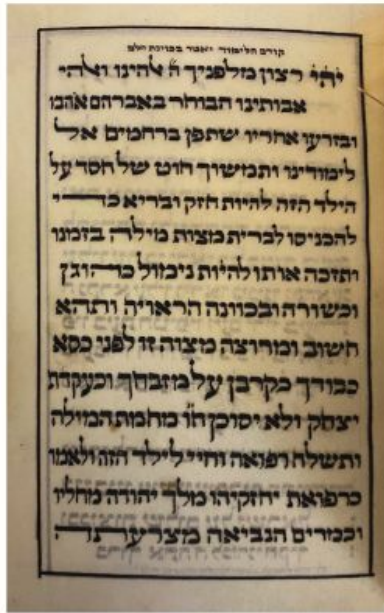 קודם הלימוד יאמר בכוונת הלב
יהי רצון מלפניך ה' אלהינו ואלהי
אבותינו הבוחר באברהם אוהבו
ובזרעו אחריו שתפן ברחמים אל
לימודינו ותמשוך חוט של חסד על
הילד הזה להיות חזק ובריא כדי
להכניסו לברית מצות מילה בזמנו
ותזכה אותו להיות נימול כהוגן
וכשורה ובכוונה הראויה ותהא
חשוב ומרוצה מצוה זו לפני כסא
כבודך כקרבן על מזבחך וכעקדת
יצחק ולא יסוכן ח"ו מחמת המילה
ותשלח רפואה וחיי לילד הזה ולאמו
כרפואת יחזקיהו מלך יהודה מחליו
וכמרים הנביאה מצרעתה